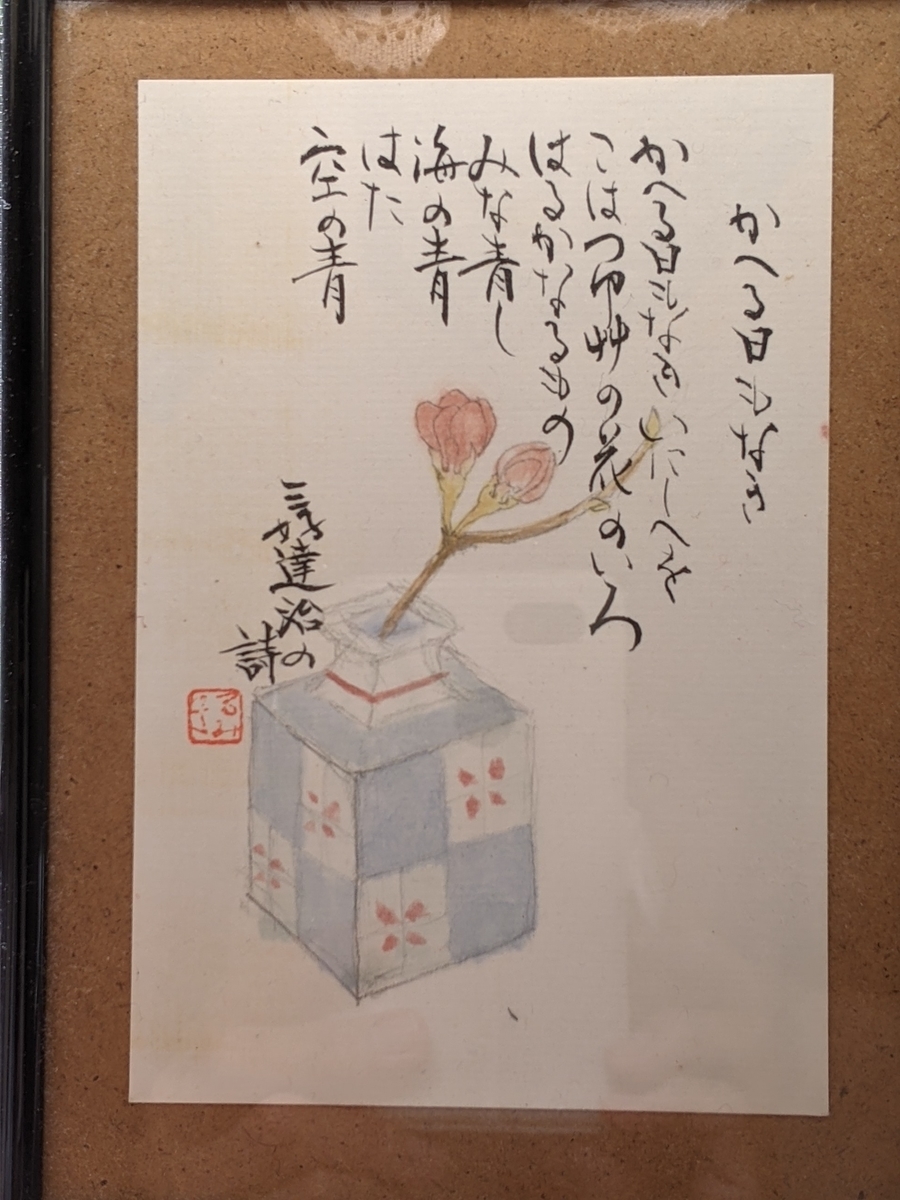 かへる日もなき
かへる日もなきいにしへを
こはつゆ艸の花のいろ
はるかなるもの
みな青し
海の青
はた
空の青
三好達治の
詩